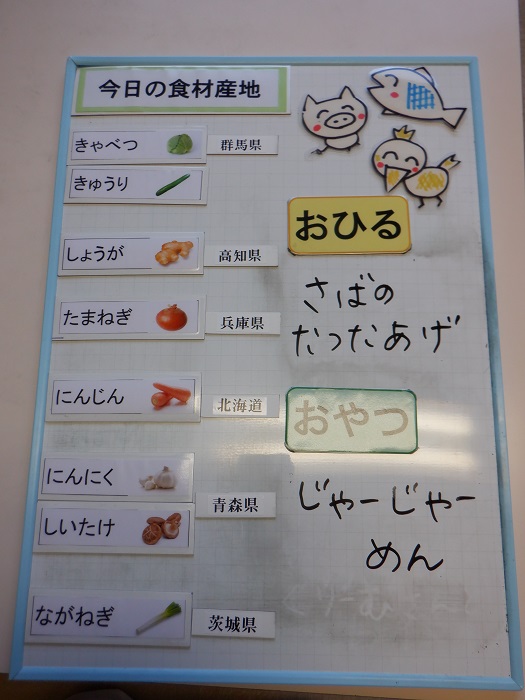 今日の食材産地
きゃべつ
群馬県
きゅうり
しょうが
高知県
たまねぎ
兵庫県
にんじん
北海道
にんにく
青森県
しいたけ
ながねぎ
茨城県
おひる
さばの
たつたあげ
おやつ
じゃーじゃー
めん